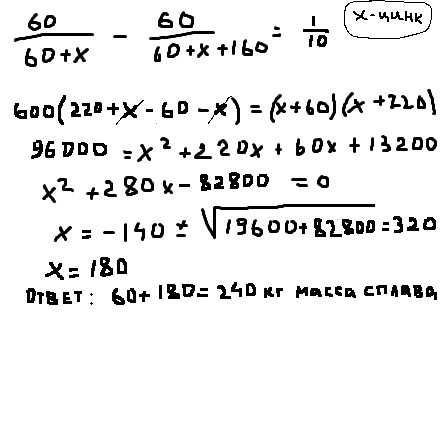 60/(60+x) - 60/(60+x+160) = 1/10 x-цинк
600(220+x-60-x)=(x+60)(x+220)
96000=x²+220x+60x+13200
x²+280x-82800=0
x=-140±√19600+82800=320
x=180
ОТВЕТ: 60+180=240 кг масса сплава